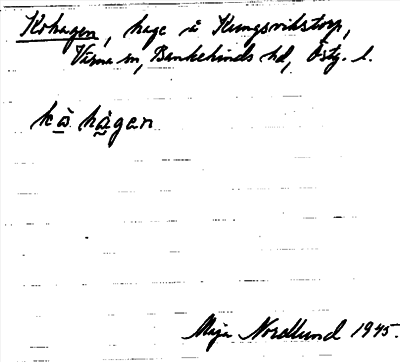 Kohagen, hage å Kungsvikstorp,
Värna sn, Bankekinds hd, Östg. l.
kò hàgan
Maja Nordlund 1945.